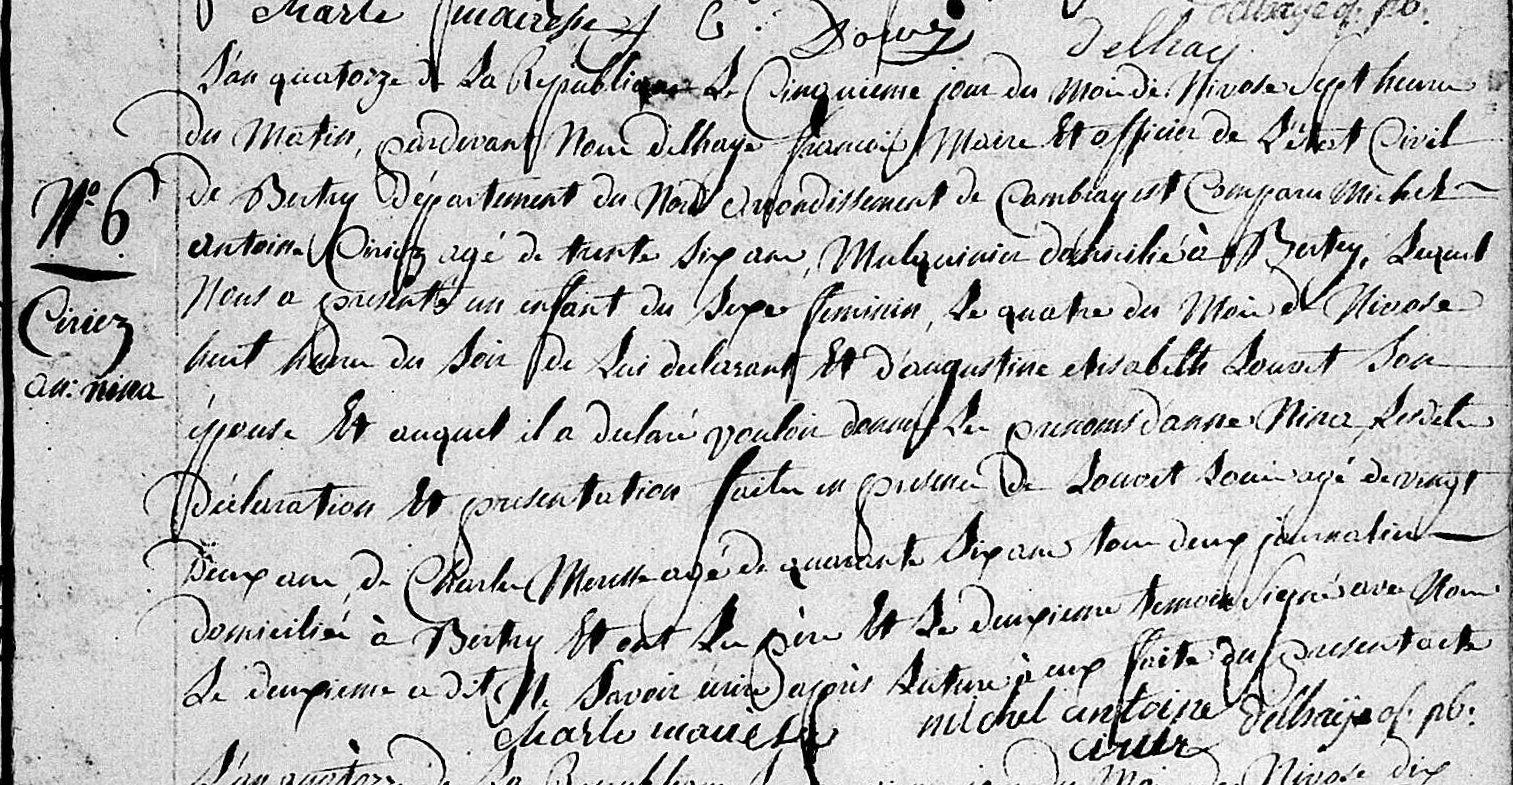 Charle mairesse C. Dowez delhaye of. pb:
Delhay
L'an quatorze de La Republique Le Cinquieme jour du Moi de Nivose Sept heure
du Matin, pardevant Nous delhaye francois Maire Et officier de L'état Civil
de Bertry Département du Nord arrondissement de Cambray est Comparu Michel
antoine Ciriez agé de trente Six ans, Mulquinier domicilié à Bertry, Lequel
Nous a presenté un enfant du Sexe feminin, Le quatre du Moi de Nivose
huit heure du Soir de Lui declarant Et d'augustine elisabeth Louvet Son
épouse Et auquel il a declaré vouloir donner Les prenoms d'anne Nina Lesdite
Déclaration Et presentation faite en presence de Louvet Louis agé de vingt
Deux ans, de Charle Meresse agé de quarante Six ans tous deux journalier
domicilié à Bertry Et ont Le père Et Le deuxieme temoin Signé avec Nous
Le deuxieme a dit Ne Savoir écrire après Lecture à eux faite du present acte
Charle mairesse michel antoine delhaye of. pb:
ciriez
N° 6
Ciriez
an: nina
L'an quatorze de La Republique du Moi de Nivose dix